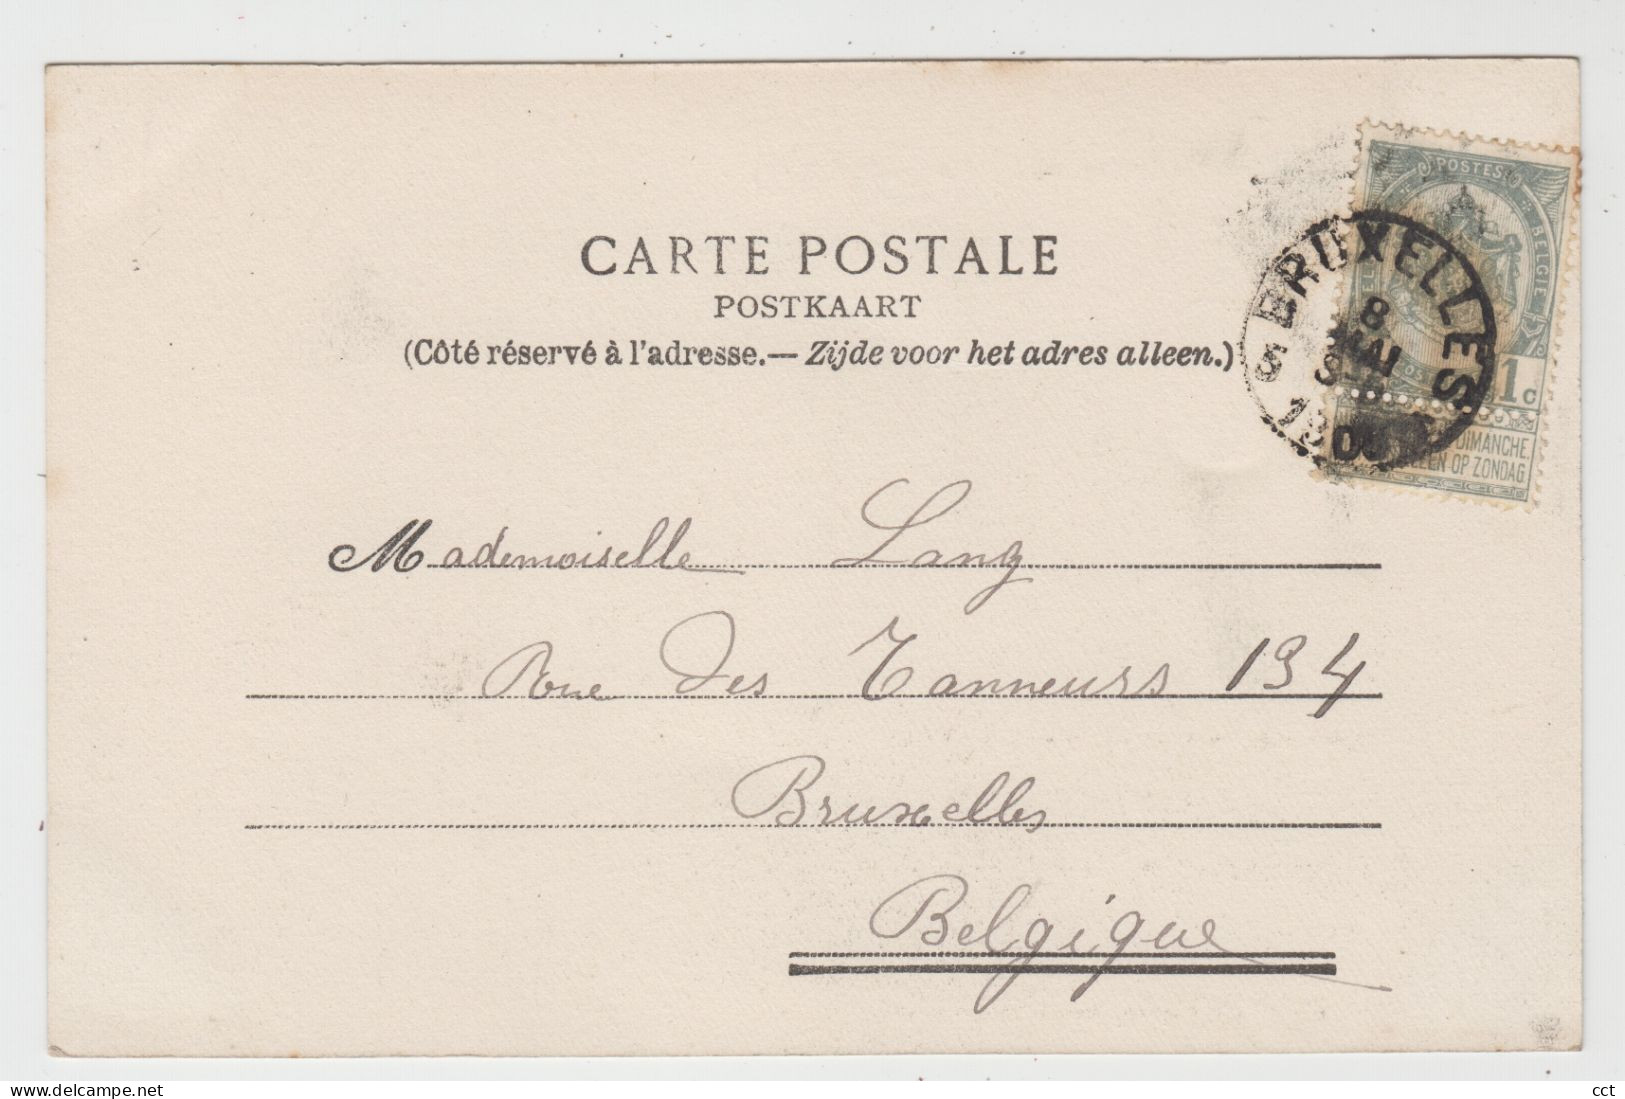 CARTE POSTALE
POSTKAART
(Côté réservé à l'adresse.— Zijde voor het adres alleen.)
POSTES
BELGIE
1c
DIMANCHE.
OP ZONDAG
BRUXELLES 5
8
MAI
Mademoiselle Lang
Rue des Tanneurs 134
Bruxelles
Belgique
cct